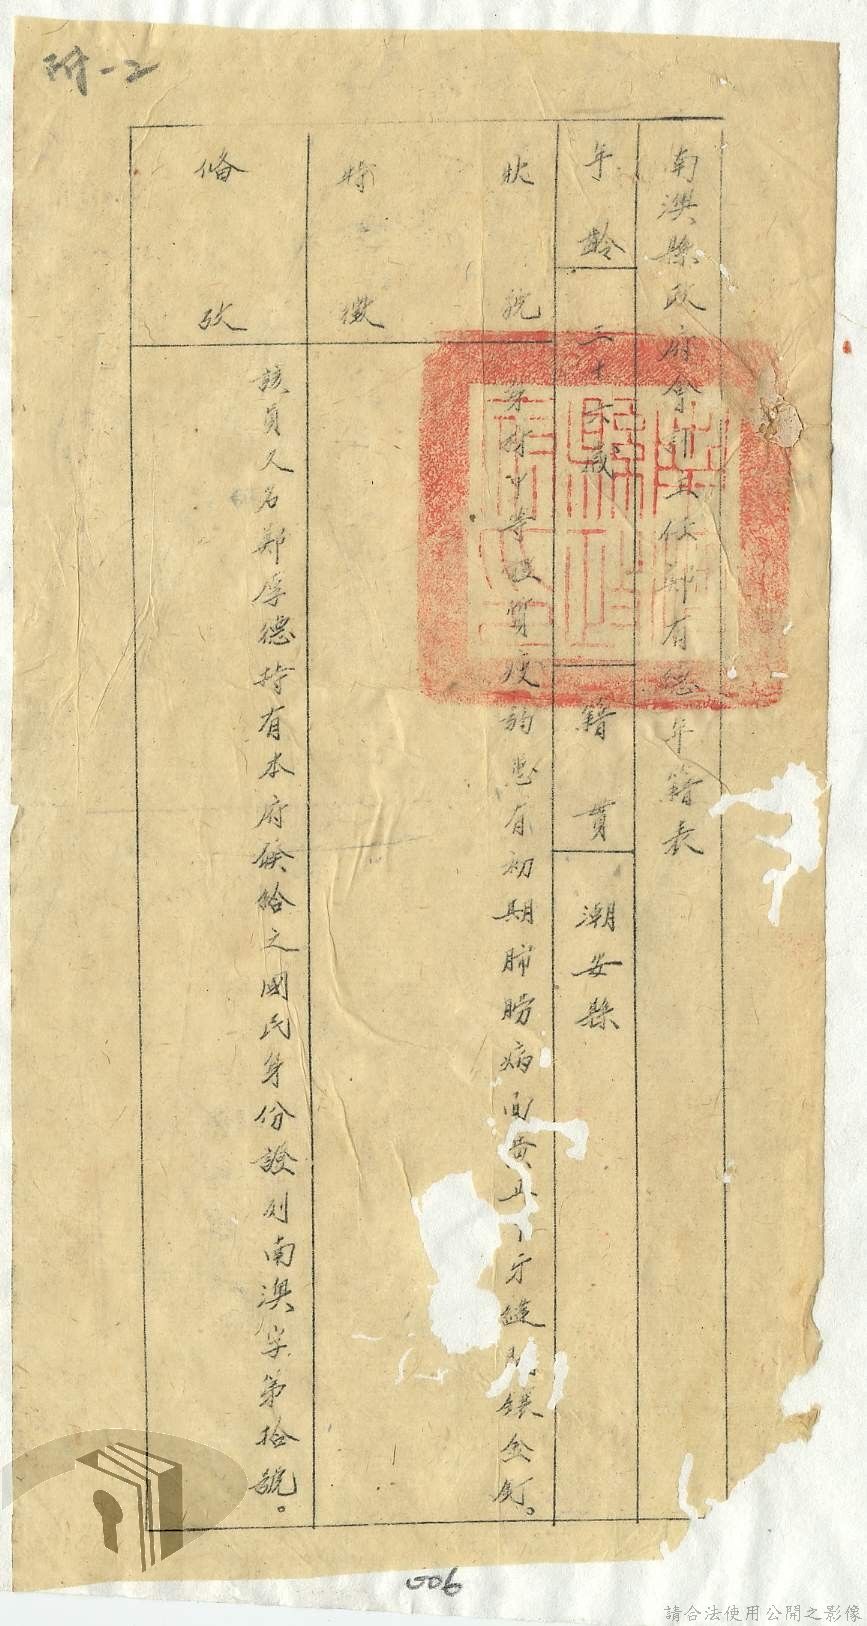 附-2
南澳縣政府會計主任鄭有德年籍表
年齡 三十六歲 籍貫 潮安縣
狀貌 身材中等體質瘦弱患有初期肺癆病面黃 牙縫 鑲金釘。
特徵
備攷 該員人名鄭厚德持有本府候給之國民身份證列南澳字第拾號。
006
請合法使用公開之影像